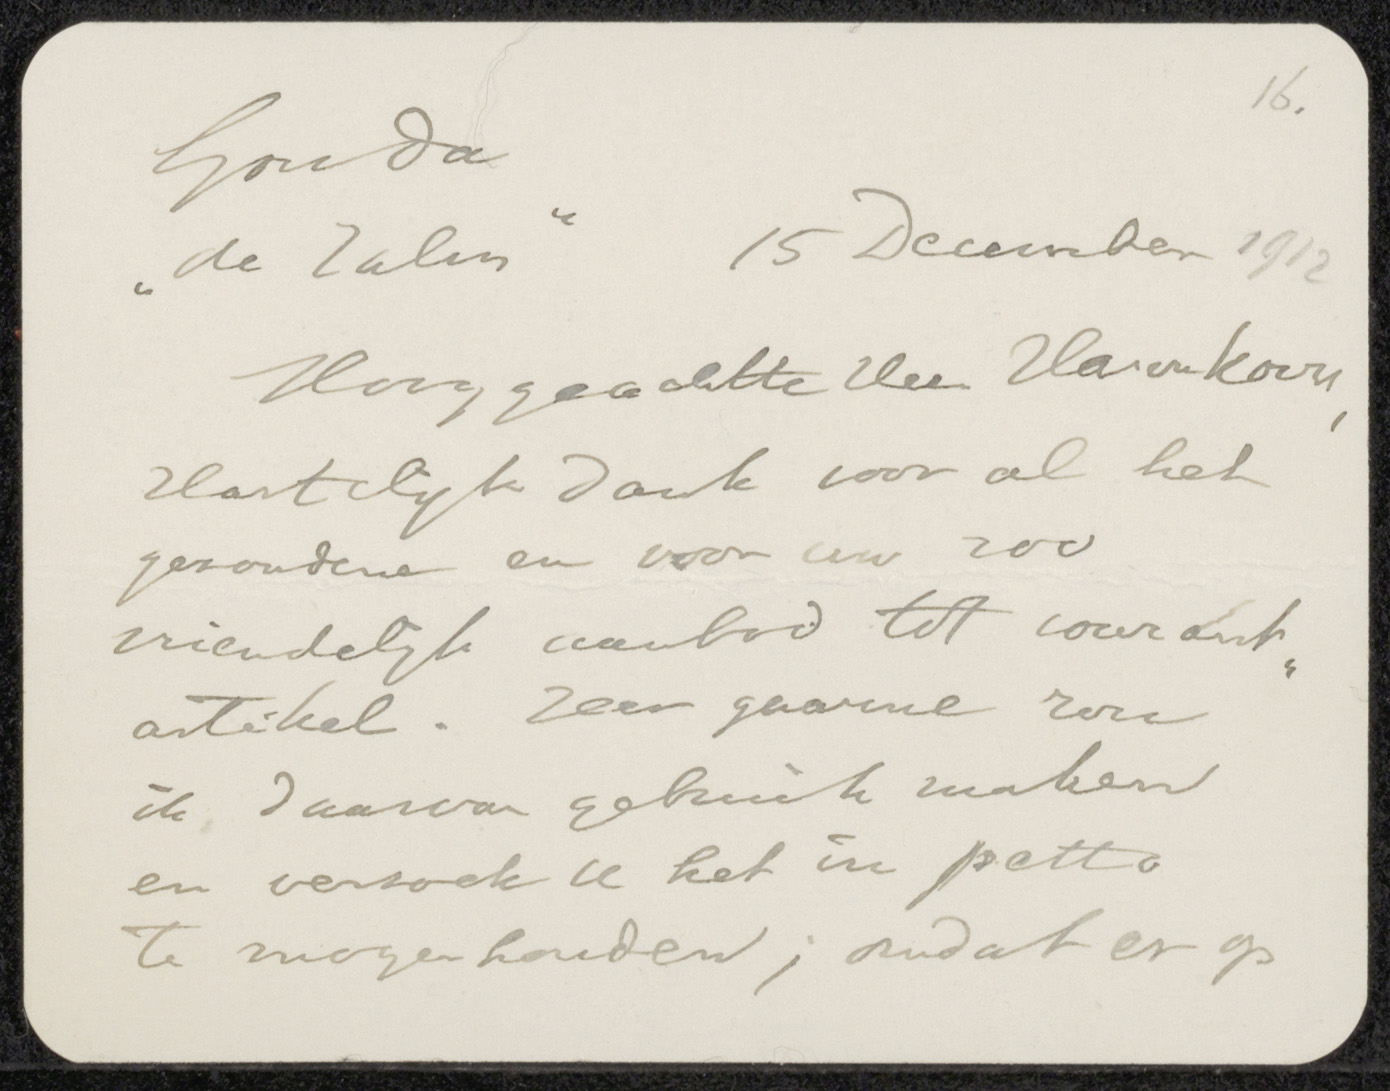 16.
Gouda
„de Zalm“ 15 December 1912
Hooggeachte Heer Haverkorn,
Hartelijk dank voor al het
gezondene en voor uw zoo
vriendelijk aanbod tot courant„
artikel. Zeer gaarne zou
ik daarvan gebruik maken
en verzoek U het in petto
te mogen houden; omdat er op